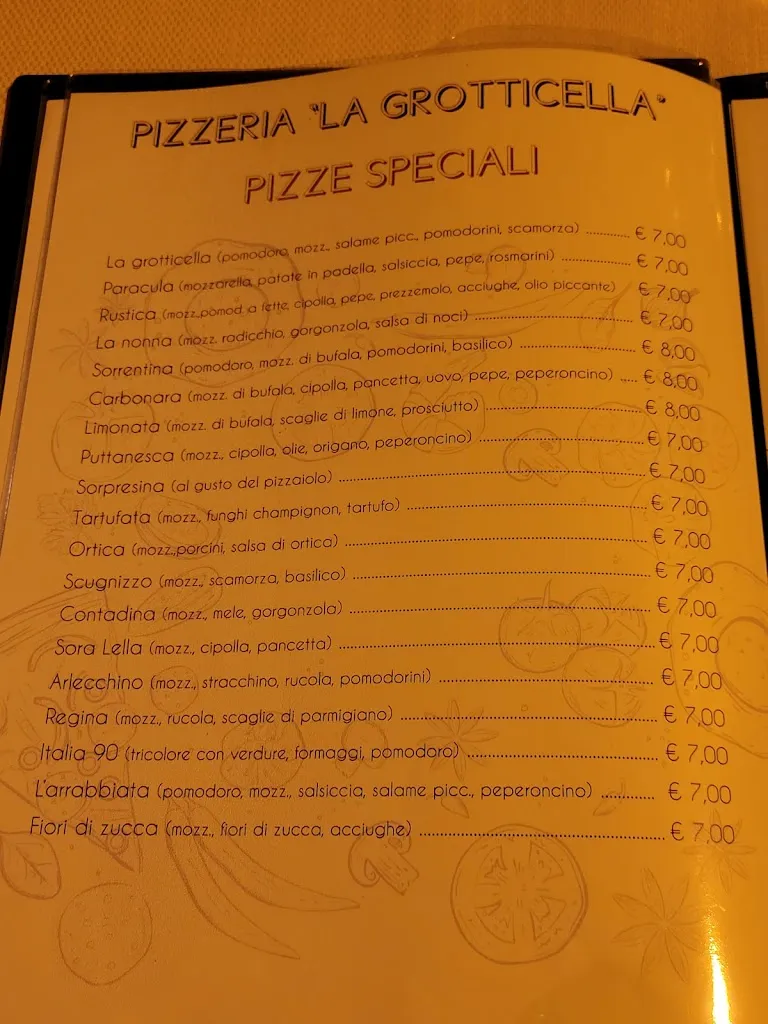 PIZZERIA "LA GROTTICELLA"
PIZZE SPECIALI
La grotticella (pomodoro, mozz., salame picc., pomodorini, scamorza) ........... € 7,00
Paracula (mozzarella, patate in padella, salsiccia, pepe, rosmarini) ................. € 7,00
Rustica (mozz.,pomod. a fette, cipolla, pepe, prezzemolo, acciughe, olio piccante) € 7,00
La nonna (mozz. radicchio, gorgonzola, salsa di noci) ........................................ € 7,00
Sorrentina (pomodoro, mozz. di bufala, pomodorini, basilico) ............................. € 8,00
Carbonara (mozz. di bufala, cipolla, pancetta, uovo, pepe, peperoncino) ..... € 8,00
Limonata (mozz. di bufala, scaglie di limone, prosciutto) ..................................... € 8,00
Puttanesca (mozz., cipolla, olie, origano, peperoncino) ....................................... € 7,00
Sorpresina (al gusto del pizzaiolo) ....................................................................... € 7,00
Tartufata (mozz., funghi champignon, tartufo) ..................................................... € 7,00
Ortica (mozz.,porcini, salsa di ortica) ................................................................... € 7,00
Scugnizzo (mozz., scamorza, basilico) .................................................................. € 7,00
Contadina (mozz., mele, gorgonzola) ................................................................... € 7,00
Sora Lella (mozz., cipolla, pancetta) ..................................................................... € 7,00
Arlecchino (mozz., stracchino, rucola, pomodorini) ............................................. € 7,00
Regina (mozz., rucola, scaglie di parmigiano) ...................................................... € 7,00
Italia 90 (tricolore con verdure, formaggi, pomodoro) ......................................... € 7,00
L'arrabbiata (pomodoro, mozz., salsiccia, salame picc., peperoncino) ............ € 7,00
Fiori di zucca (mozz., fiori di zucca, acciughe) ..................................................... € 7,00